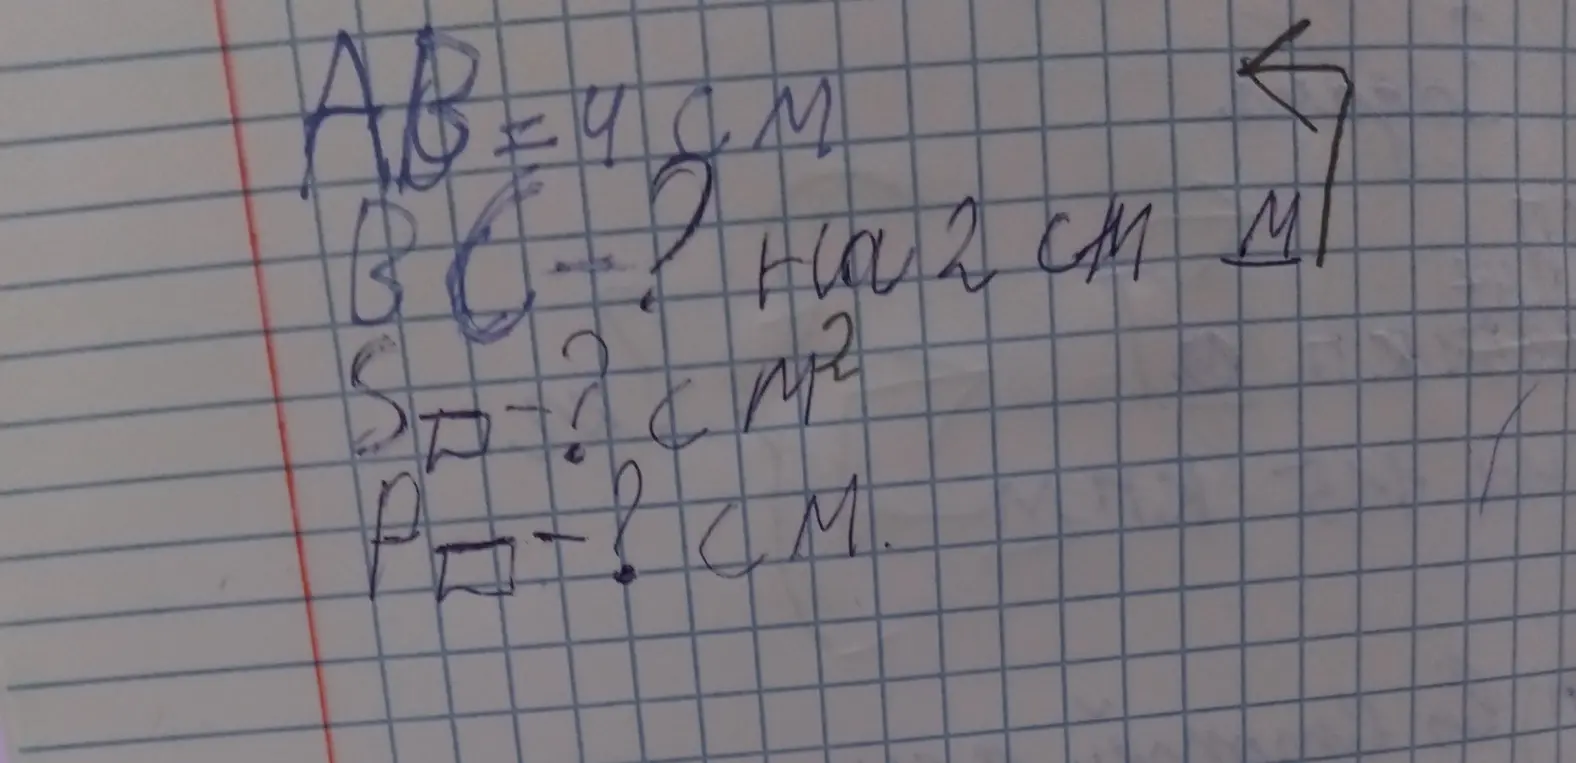 AB = 4 см
BC - ? на 2 см м
S▭ - ? см²
P▭ - ? см.